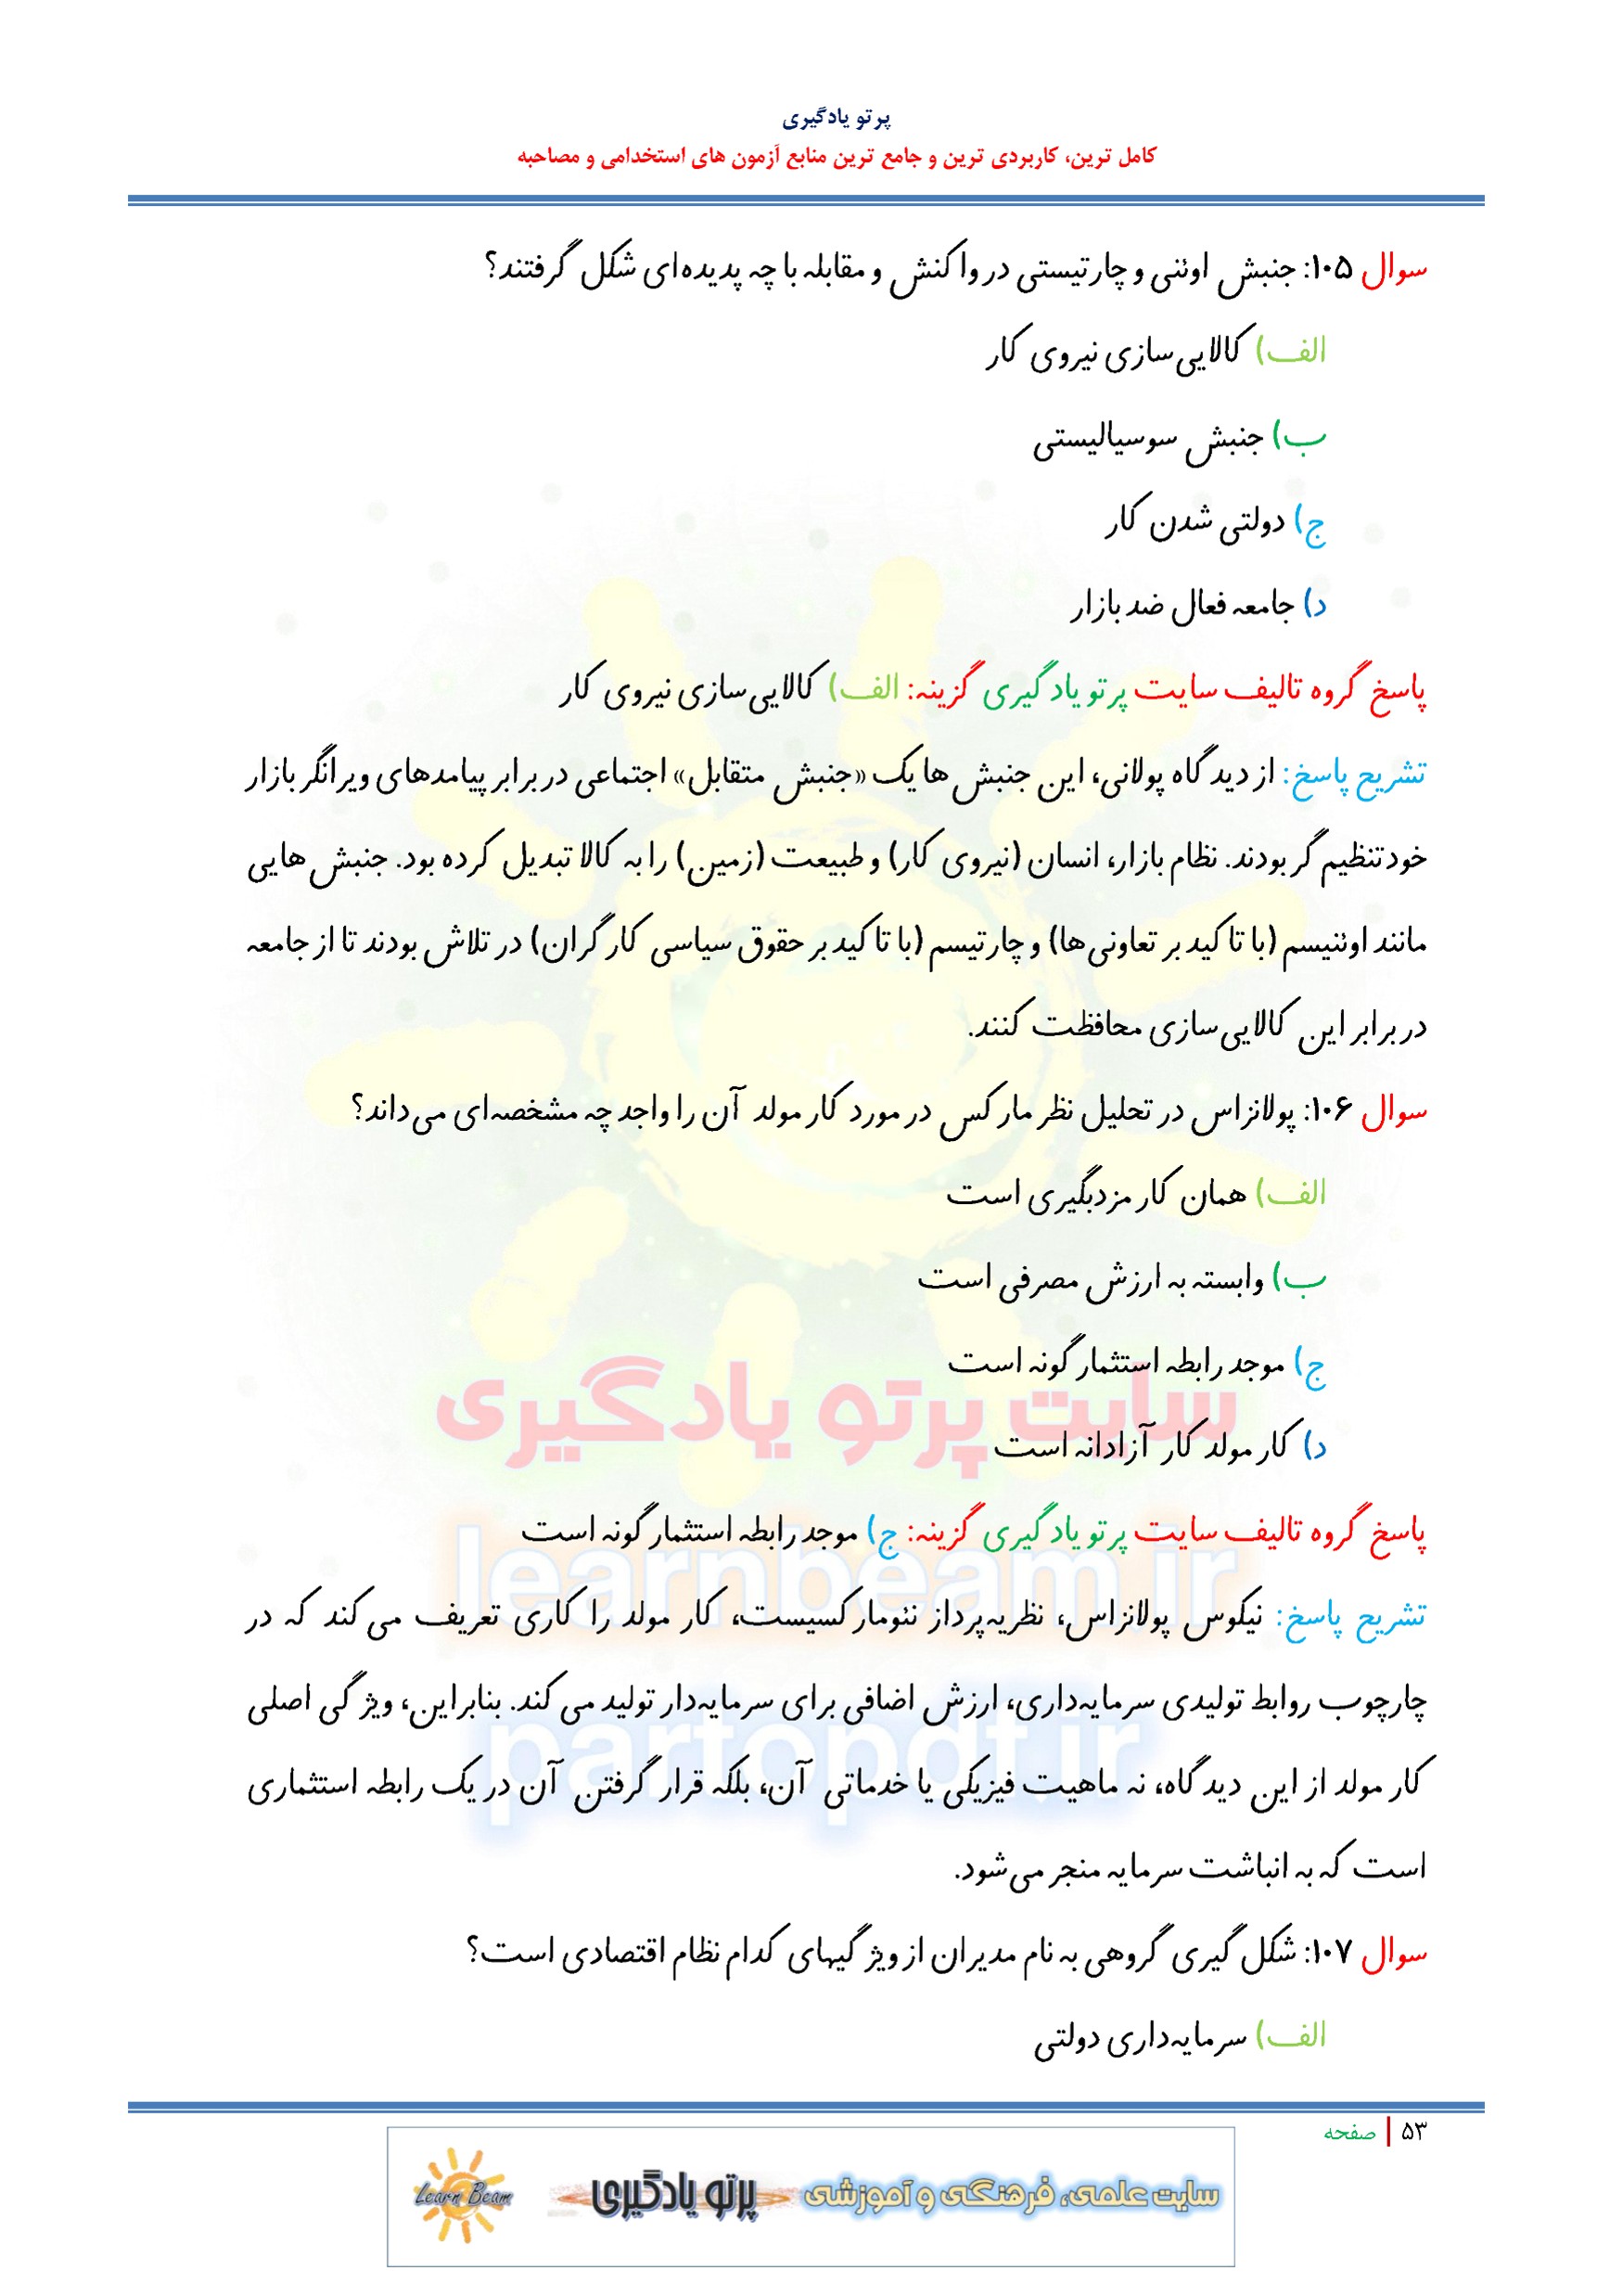 پرتو یادگیری
کامل ترین، کاربردی ترین و جامع ترین منابع آزمون های استخدامی و مصاحبه
سوال ۱۰۵: جنبش اوئنی و چارتیستی در واکنش و مقابله با چه پدیده‌ای شکل گرفتند؟
الف) کالایی‌سازی نیروی کار
ب) جنبش سوسیالیستی
ج) دولتی شدن کار
د) جامعه فعال ضد بازار
پاسخ گروه تالیف سایت پرتو یادگیری گزینه: الف) کالایی‌سازی نیروی کار
تشریح پاسخ: از دیدگاه پولانی، این جنبش ها یک «جنبش متقابل» اجتماعی در برابر پیامدهای ویرانگر بازار
خودتنظیم گر بودند. نظام بازار، انسان (نیروی کار) و طبیعت (زمین) را به کالا تبدیل کرده بود. جنبش هایی
مانند اوئنیسم (با تاکید بر تعاونی‌ها) و چارتیسم (با تاکید بر حقوق سیاسی کارگران) در تلاش بودند تا از جامعه
در برابر این کالایی‌سازی محافظت کنند.
سوال ۱۰۶: پولانزاس در تحلیل نظر مارکس در مورد کار مولد آن را واجد چه مشخصه‌ای می‌داند؟
الف) همان کار مزدبگیری است
ب) وابسته به ارزش مصرفی است
ج) موجد رابطه استثمارگونه است
د) کار مولد کار آزادانه است
پاسخ گروه تالیف سایت پرتو یادگیری گزینه: ج) موجد رابطه استثمارگونه است
تشریح پاسخ: نیکوس پولانزاس، نظریه‌پرداز نئومارکسیست، کار مولد را کاری تعریف می‌کند که در
چارچوب روابط تولیدی سرمایه‌داری، ارزش اضافی برای سرمایه‌دار تولید می‌کند. بنابراین، ویژگی اصلی
کار مولد از این دیدگاه، نه ماهیت فیزیکی یا خدماتی آن، بلکه قرار گرفتن آن در یک رابطه استثماری
است که به انباشت سرمایه منجر می‌شود.
سوال ۱۰۷: شکل گیری گروهی به نام مدیران از ویژگیهای کدام نظام اقتصادی است؟
الف) سرمایه‌داری دولتی
سایت پرتو یادگیری
learnbeam.ir
partopdf.ir
۵۳ | صفحه
سایت علمی، فرهنگی و آموزشی پرتو یادگیری Learn Beam